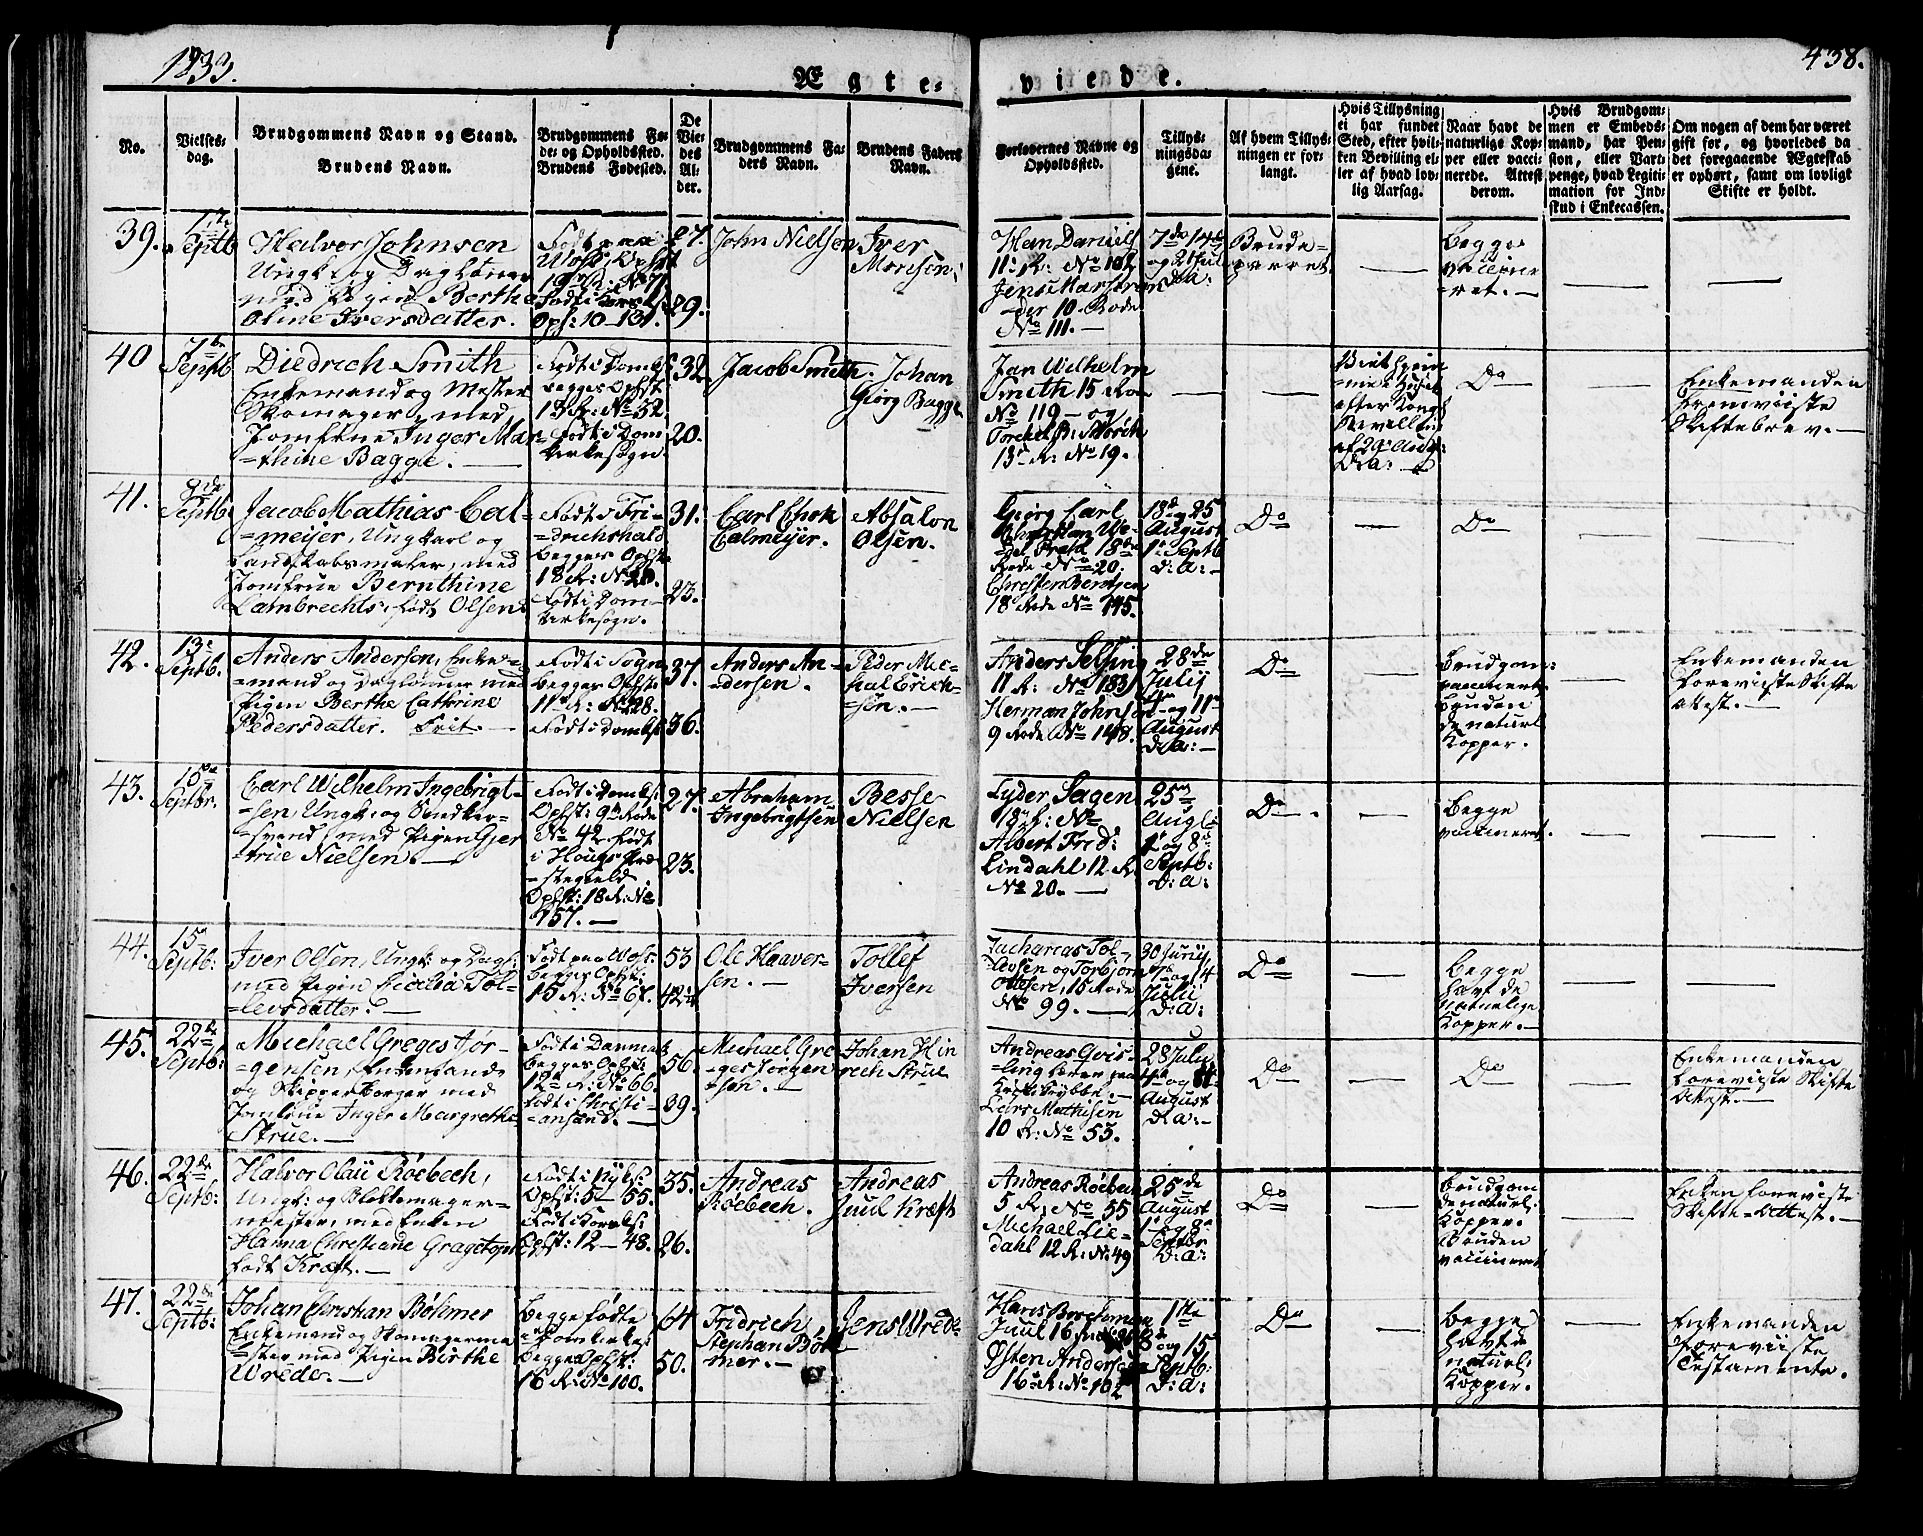 1833.
438.
Ægte-
viede.
No.
Vielses-
dag.
Brudgommens Navn og Stand.
Brudens Navn.
Brudgommens Fø-
de- og Opholdssted.
Brudens Fødested.
De
Vie-
des
Al-
der.
Brudgommens Fa-
ders Navn.
Brudens Faders
Navn.
Forlovernes Navne og
Opholdssted.
Tillys-
ningsda-
gene.
Af hvem Tillys-
ningen er for-
langt.
Hvis Tillysning
ei har fundet
Sted, efter hvil-
ken Bevilling el-
ler af hvad lov-
lig Aarsag.
Naar havt de
naturlige Kop-
per eller vacci-
nerede. Attest
derom.
Hvis Brudgom-
men er Embeds-
mand, har Pen-
sion, eller Vart-
penge, hvad Legiti-
mation for Ind-
skud i Enkecassen.
Om nogen af dem har været
gift før, og hvorledes da
det foregaaende Ægteskab
er ophørt, samt om lovligt
Skifte er holdt.
39.
Septb
Halvor Johnsen
Ungk: og Dagløner
med Pigen Berthe
Oline Iversdatter.
Født paa
Opst:
Opst: 10 - 131.
27.
29.
John Nielsen
Iver
Monsen.
Daniels
11: R: No 102
10 Rode
No 111. -
7de 14de
og 21 Juli
D: A:
Brude-
parret.
Begge
vaccine-
ret. -
40
7de
Septb
Diedrich Smith
Enkemand og Mester
Skomager, med,
Jomfrue Inger Mar-
=thine Bagge. -
Født i Domks
begges Opst:
13 R: No 32.
Født i Dom
kirkesogn.
32.
20.
Jacob Smith.
Johan
Georg Bagge
Jan Wilhelm
Smith 15 Rode
No 119 - og
13de R: No 19.
Viet hjem-
me i Huset
efter Kongl
Bevilling
af 29 Aug:
D: A:
Do
Enkemanden
fremviiste
Skiftebrev. -
41.
9de
Septb:
Jacob Mathias Cal-
=meijer, Ungkarl og
Landskabsmaler, med
Jomfrue Bernthine
Lambrechts, født Olsen.
Født i Fri-
=drichshald
begges Opst:
18 R: No 20.
Født i Dom-
kirkesogn.
31.
23.
Carl
Calmeijer.
Absalon
Olsen.
Georg Carl
Christian We-
del Prahl 18de
Rode No 20.
Christen Berntsen
18 Rode No 145.
18de og 25
August
1ste Septb
D: A: -
Do
Do
42.
13de
Septb.
Anders Andersen, Enke-
=mand og Dagløner med
Pigen Berthe Cathrine
Pedersdatter. Frit. -
Født i Sogn
begges Opst:
11te R: No 228.
Født i Domks.
37.
36.
Anders An-
=dersen.
Peder Mic-
hal Erich-
=sen. -
Anders Selsing
11 R: No 183
Herman Johnsen
9 Rode No 148.
28de
Julij
4de og 11te
August
D: A: -
Do
Brudgom:
vaccineret
Bruden
de naturl.
Kopper.
Enkemanden
foreviiste Skifte
attest. -
43.
15de
Septbr.
Carl Wilhelm Ingebrigt-
=sen, Ungk: og Snedker-
=svend med Pigen Gjer
=true Nielsen. -
Født i Domks:
Opst: 9de Rode
No 42. født
i Houges Præ-
=stegield
Opst: 18 R: No
157. -
27.
23.
Abraham
Ingebrigtsen
Besse
Nielsen
Lyder Sagen
18de R: No
Albert Fred:
Lindahl 12 R:
No 20. -
25de
Aug:
1ste og 8de
Septb:
D: A:
Do.
Begge
vaccineret.
44.
15de
Septb:
Iver Olsen, Ungk: og Dagl:
med Pigen Cicilia Tol-
=levsdatter. -
Født paa Voss.
begges Opst:
15 R: No 67.
53
42
Ole Haaver-
sen. -
Tollef
Iversen
Zacharias Tol-
levsen og Torbjørn
Ottesen, 15 Rode
No 99. -
30 Junij
7de og 14
Julii
D: A:
Do
Begge
havt de
Naturlige
Kopper. -
45.
22de
Septb:
Michael Greges Jør-
=gensen, Enkemand
og Skipperborger med
Jomfrue Inger Margrethe
Strue. -
Født i Danmark
begges Opst:
12te R: No 66.
født i Christi-
=ansand. -
56.
39.
Michael Gre
=ges Jørgen
=sen. -
Johan Hin
rich Strue
Andreas Qvis-
ling
Lars Mathisen
10 R: No 55.
28 Julij
4de og 11te
August
D: A: -
Do
Do
Enkemanden
foreviiste Skifte
Attest. -
46.
22de
Septb:
Halvor Olaii Röebech,
Ungk: og Blokkemager-
=mester, med Enken
Hanna Christiane Gragetopn
født Kræft. -
Født i Nyks:
Opst: 5 - 55.
Født i Korsk:
Opst: 12 - 48.
35.
26.
Andreas
Röebech.
Andreas
Juul Kræft
Andreas Röebech
5 R: No 55
Michael Lie-
dahl 12 R: No 49
25de
August
1ste og 8de
Septbr
D: A:
Do
Brudgom
de naturl:
Kopper.
Bruden
vaccineret
Enken foreviste
Skifte-Attest. -
47.
22de
Septb:
Johan Christian Böhmer
Enkemand og Skomagerme
=ster med Pigen Birthe
Wrede. -
Begge fødte
i Domkirkes:
begge Opst:
16 R: No 100.
64
50.
Fridrich
Stephan Böh
mer. -
Jens Wrede
Hans Brockman
Juul 16
Østen Andersen
16de R: No 102
1ste
8de og 15
Septb:
D: A:
Do
Begge
havt de
naturl:
Kopper.
Enkemanden
foreviiste
Testamente.